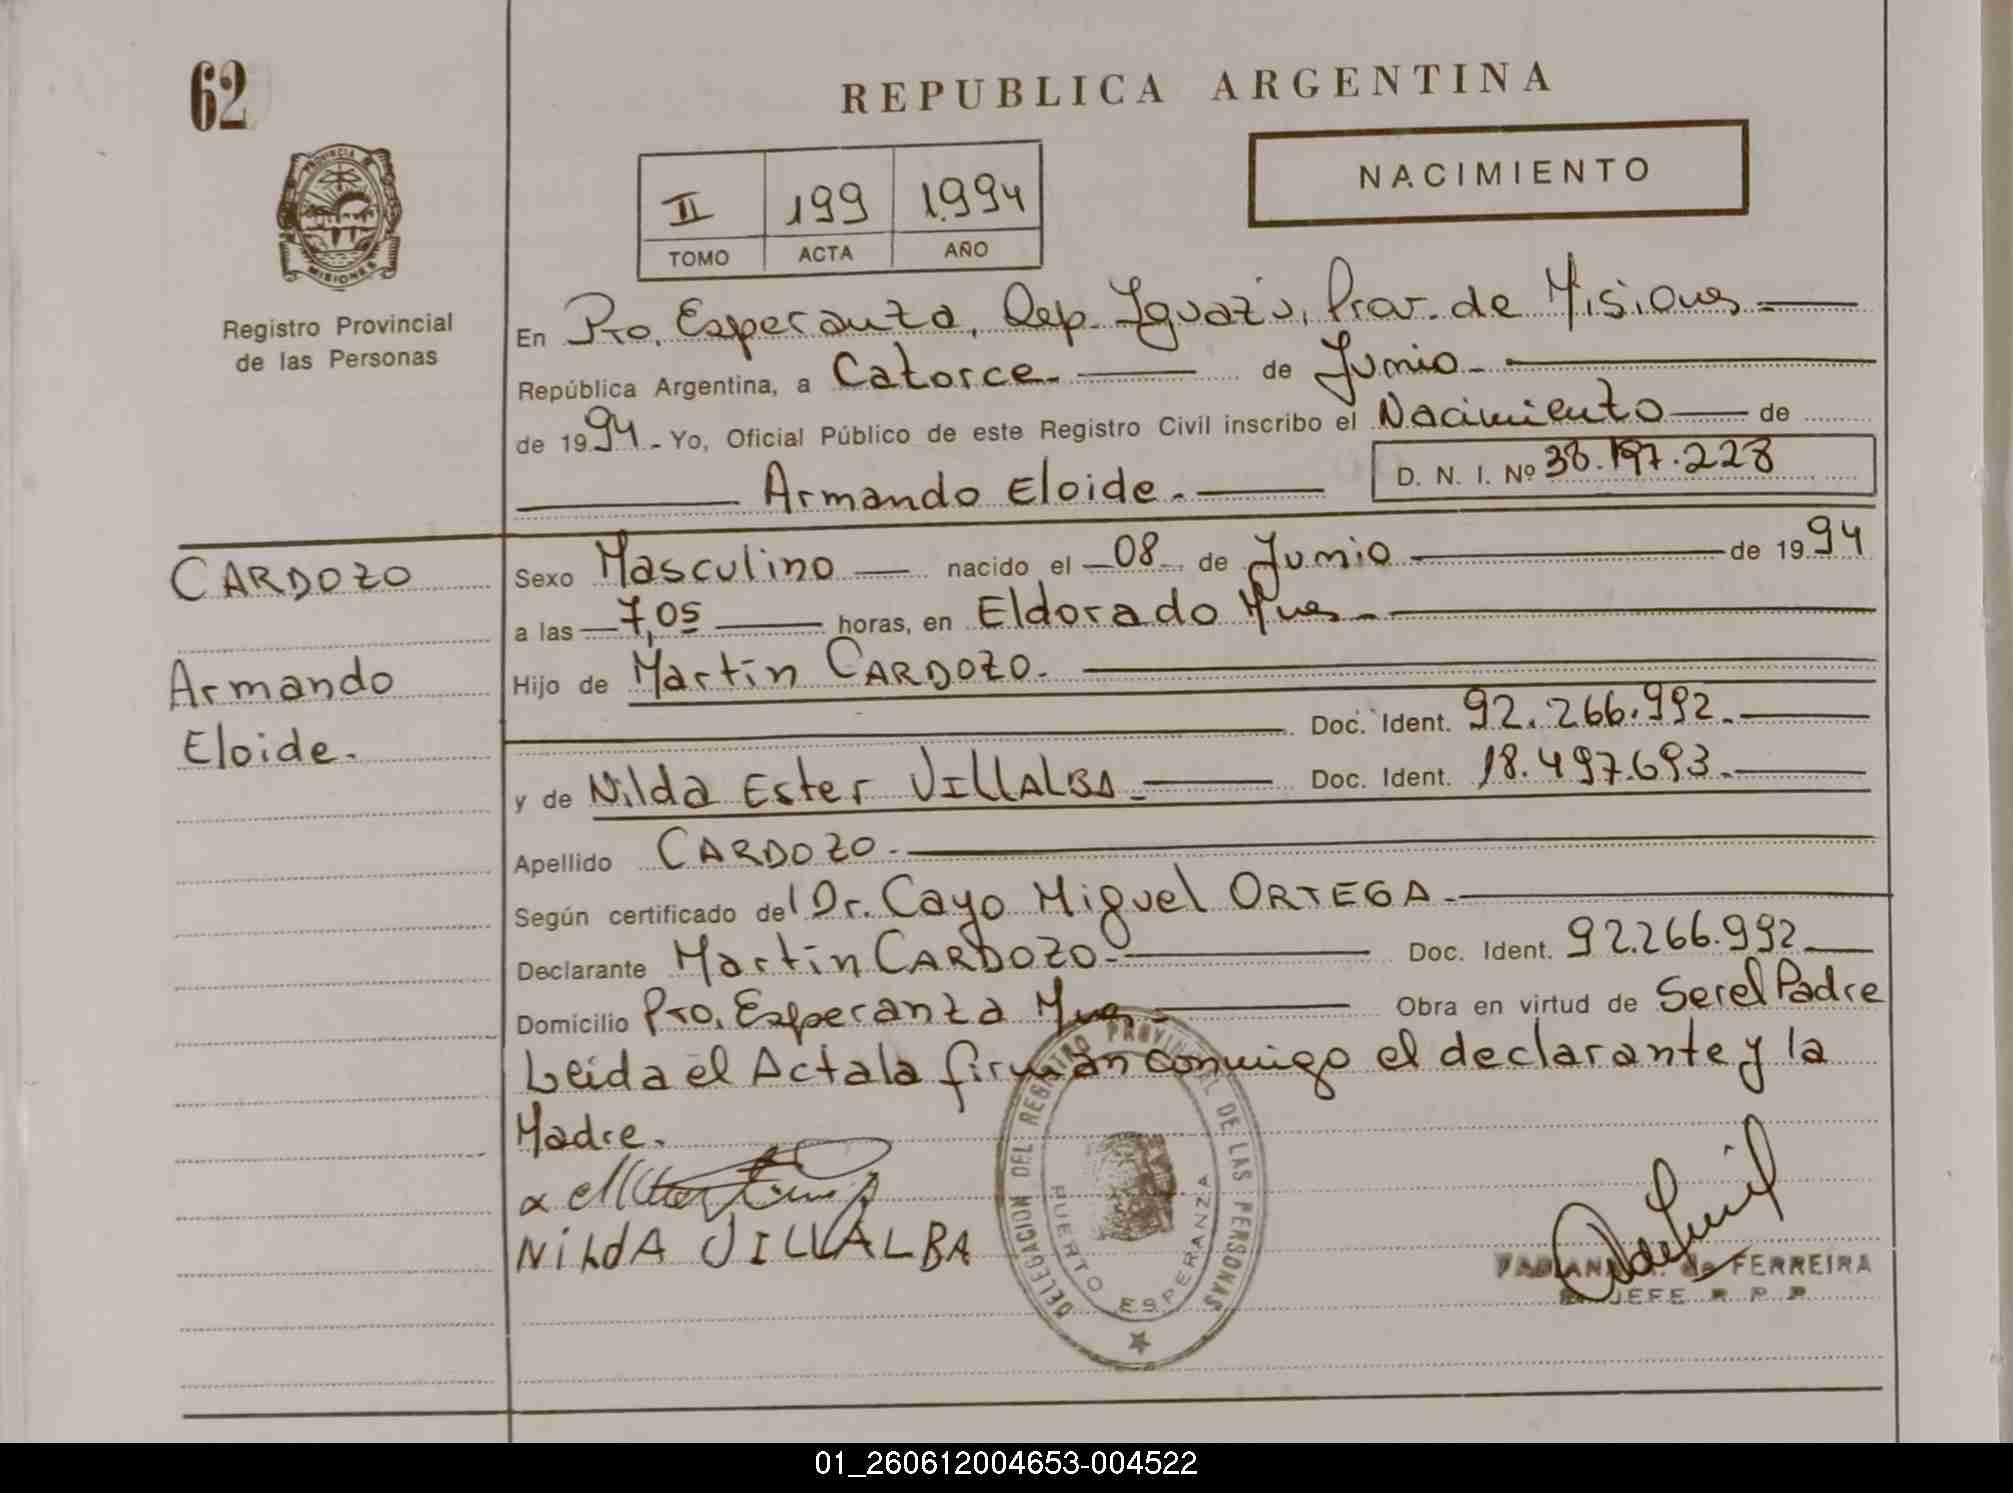 62
REPUBLICA ARGENTINA
NACIMIENTO
II 199 1.994
TOMO ACTA AÑO
PROVINCIA DE
MISIONES
Registro Provincial
de las Personas
En Pto. Esperanza, Dep. Iguazú, Prov. de Misiones
República Argentina, a Catorce. de Junio.
de 1994. Yo, Oficial Público de este Registro Civil inscribo el Nacimiento de
D. N. I. Nº 38.197.228
Armando Eloide.
CARDOZO
Armando
Eloide.
Sexo Masculino nacido el 08 de Junio de 1994
a las 7,05 horas, en Eldorado Mnes.
Hijo de Martin CARDOZO.
Doc. Ident. 92.266.992.
y de Nilda Ester VIllALBA. Doc. Ident. 18.497.693.
Apellido CARDOZO.
Según certificado del Dr. Cayo Miguel ORTEGA.
Declarante Martin CARDOZO. Doc. Ident. 92.266.992
Domicilio Pto. Esperanza Mnes. Obra en virtud de Ser el Padre
Leida el Acta la firman conmigo el declarante y la
Madre.
NiLdA VILLALBA
DELEGACION DEL REGISTRO PROVINCIAL DE LAS PERSONAS
PUERTO ESPERANZA
de FERREIRA
JEFE R. P. P.
01_260612004653-004522